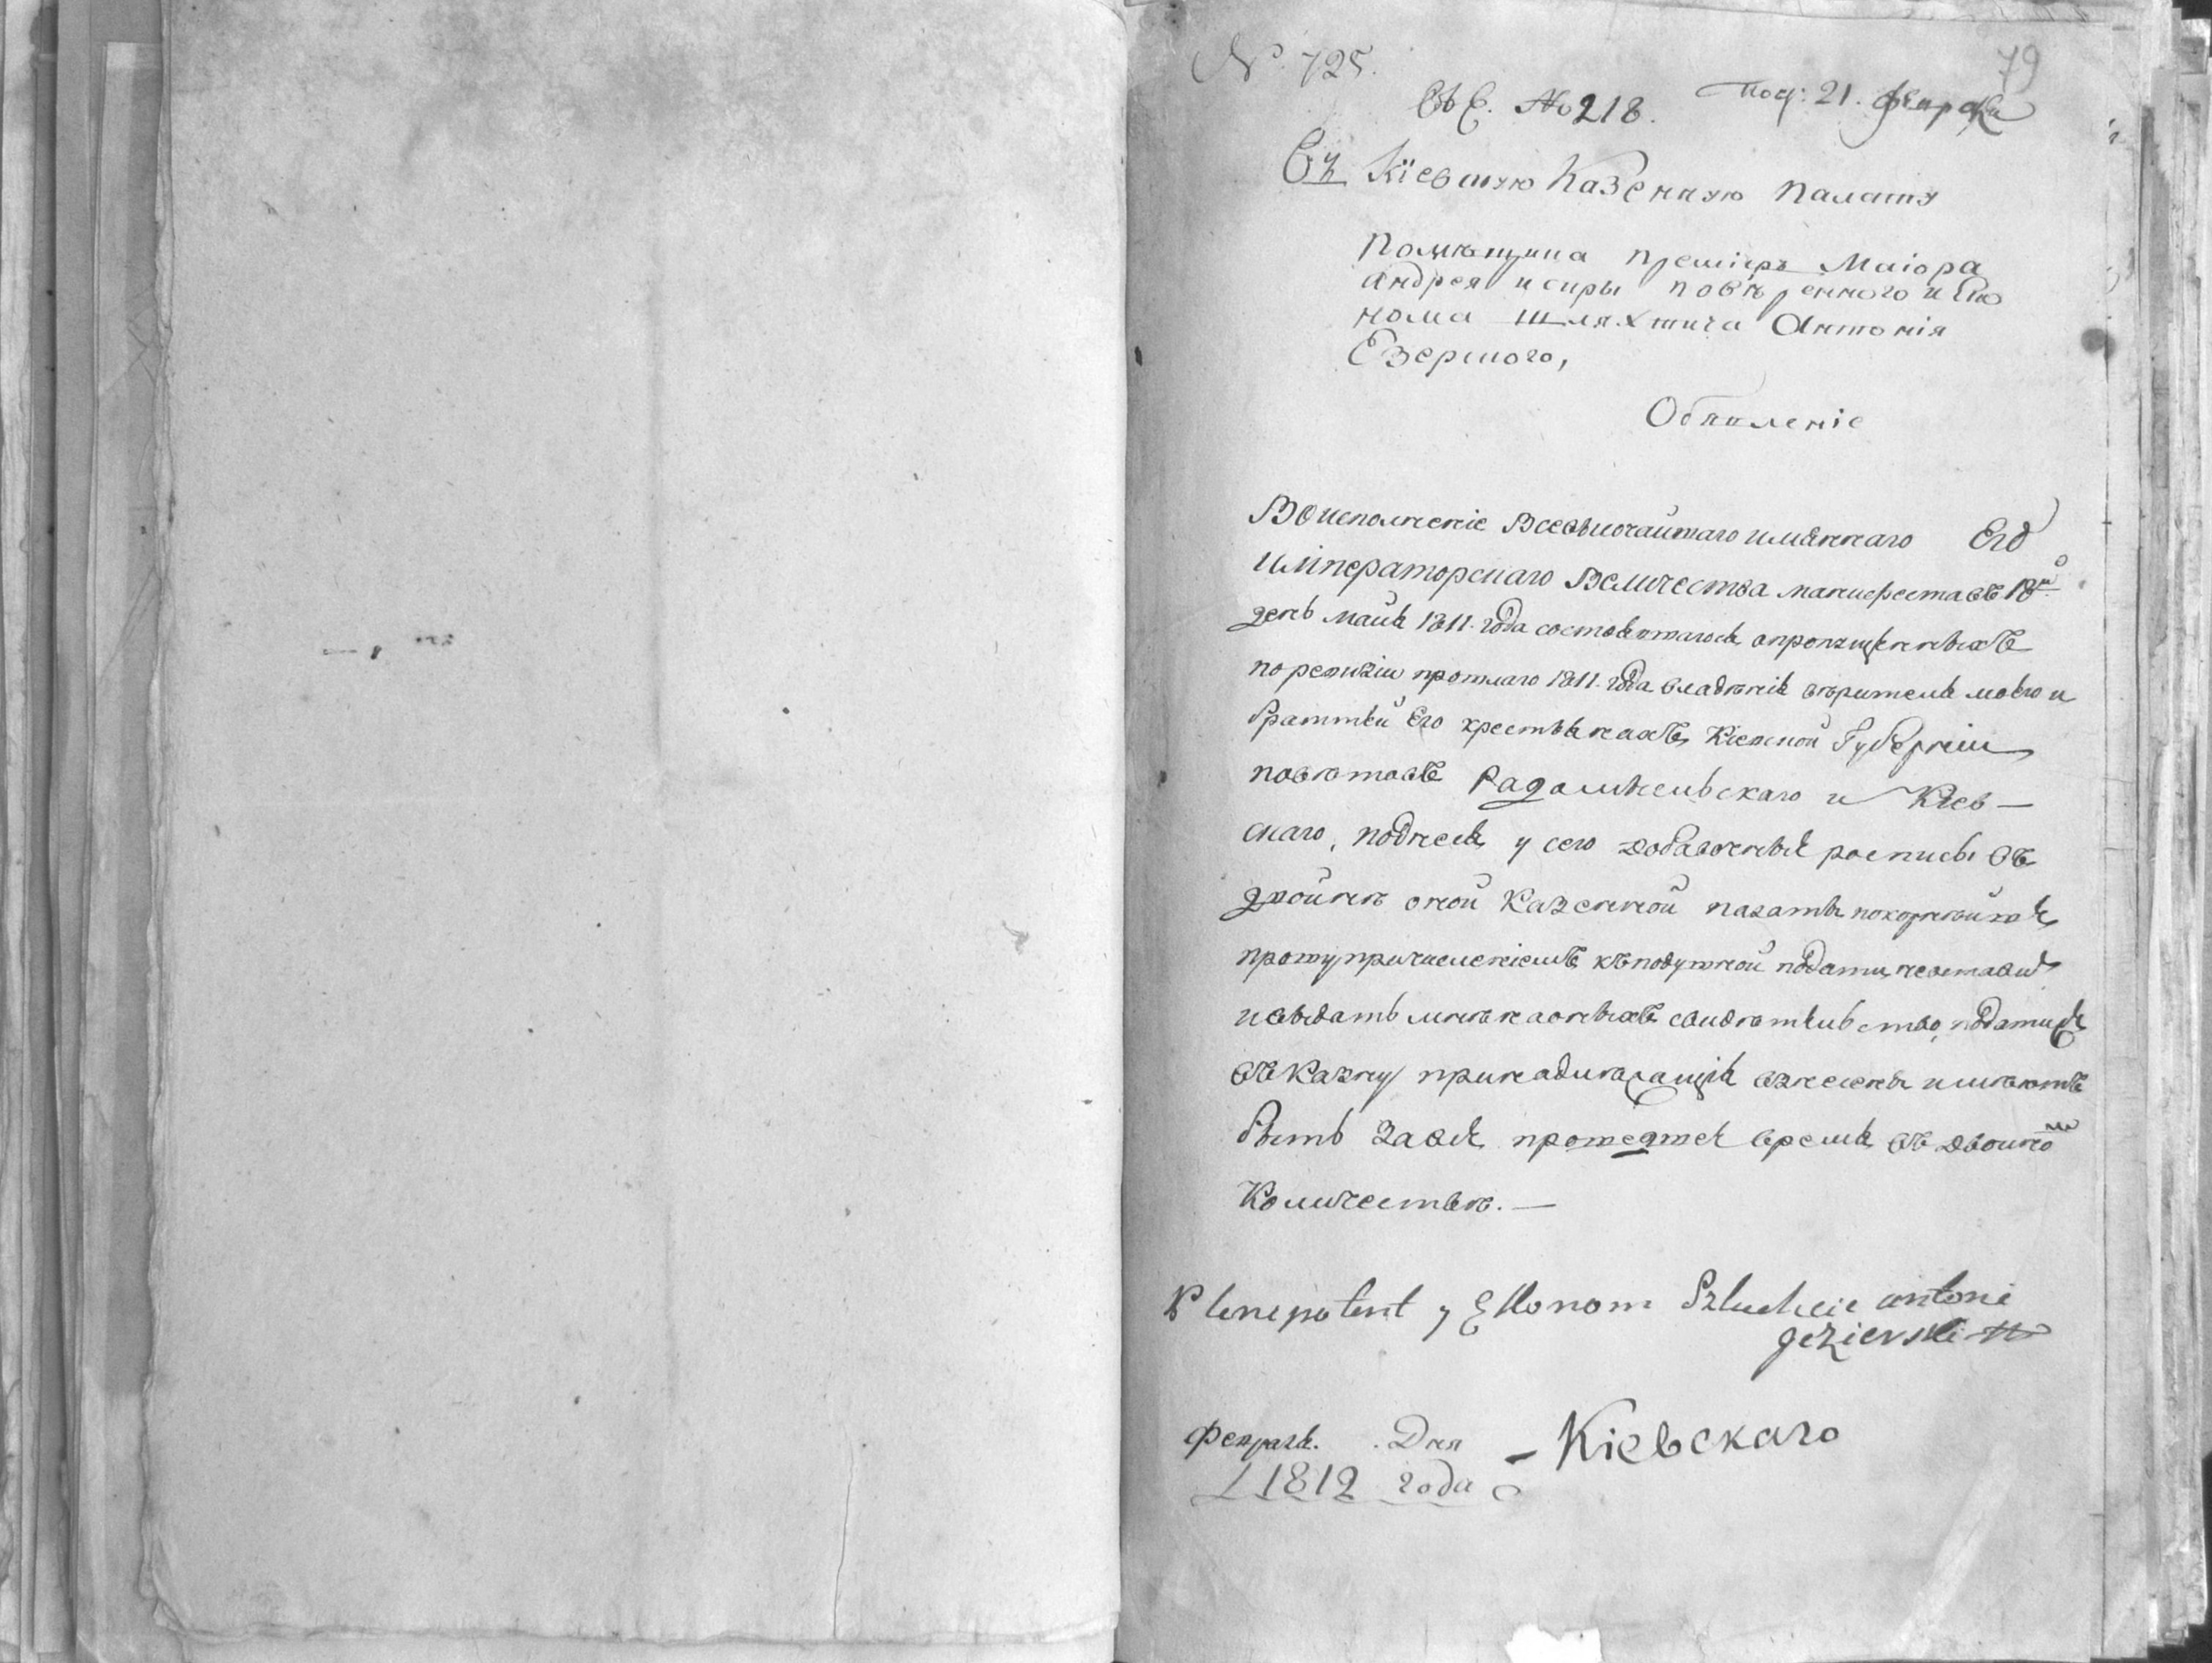 № 725.
79
Въ С. №218. Под: 21. февраля
Въ Кіевскую Казенную Палату
Помѣщика премiеръ Маіора
Андрея повѣренного и Еко
нома шляхтича Антонія
Езерского,
Обявленіе
Во исполненіе Всевысочайшаго имяннаго Его
Императорскаго Величества манифеста въ 18й
день Мая 1811. года состоявшагося, опропущенныхъ
поревизіи прошлаго 1811. года владѣнія вѣрителя моего и
братьи Его крестьянахъ, Кіевской Губерніи,
повѣтовъ Радомысльскаго и Кіев—
скаго, поднеся у сего росписи въ
двойнѣ оной Казенной палаты покорнѣйше
прошу, причисленіемъ кѣподушной подати, неоставить
ивыдать мнѣ наоныхъ свидѣтельство, податиже
въКазну принадлежащія взнесены имѣютъ
быть Завсе прошедшее время, въ двойномъ
Количествѣ.—
Plenepotent y Ekonom Szlachcic Antoni
Jezierski
Февраля. Дня – Кіевскаго
1812 года